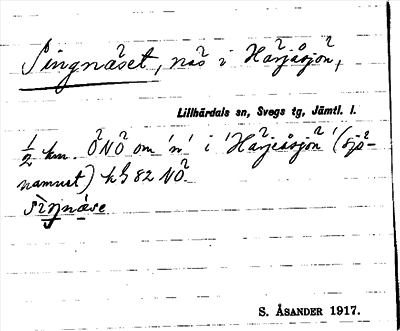 Singnäset, näs i Härjåsjön,
Lillhärdals sn, Svegs tg, Jämtl. l.
1/2 km. ÖNÖ om 'n' i 'Härjeåsjön' (sjö-
namnet) h G 82 NÖ.
siŋnäse
S. ÅSANDER 1917.